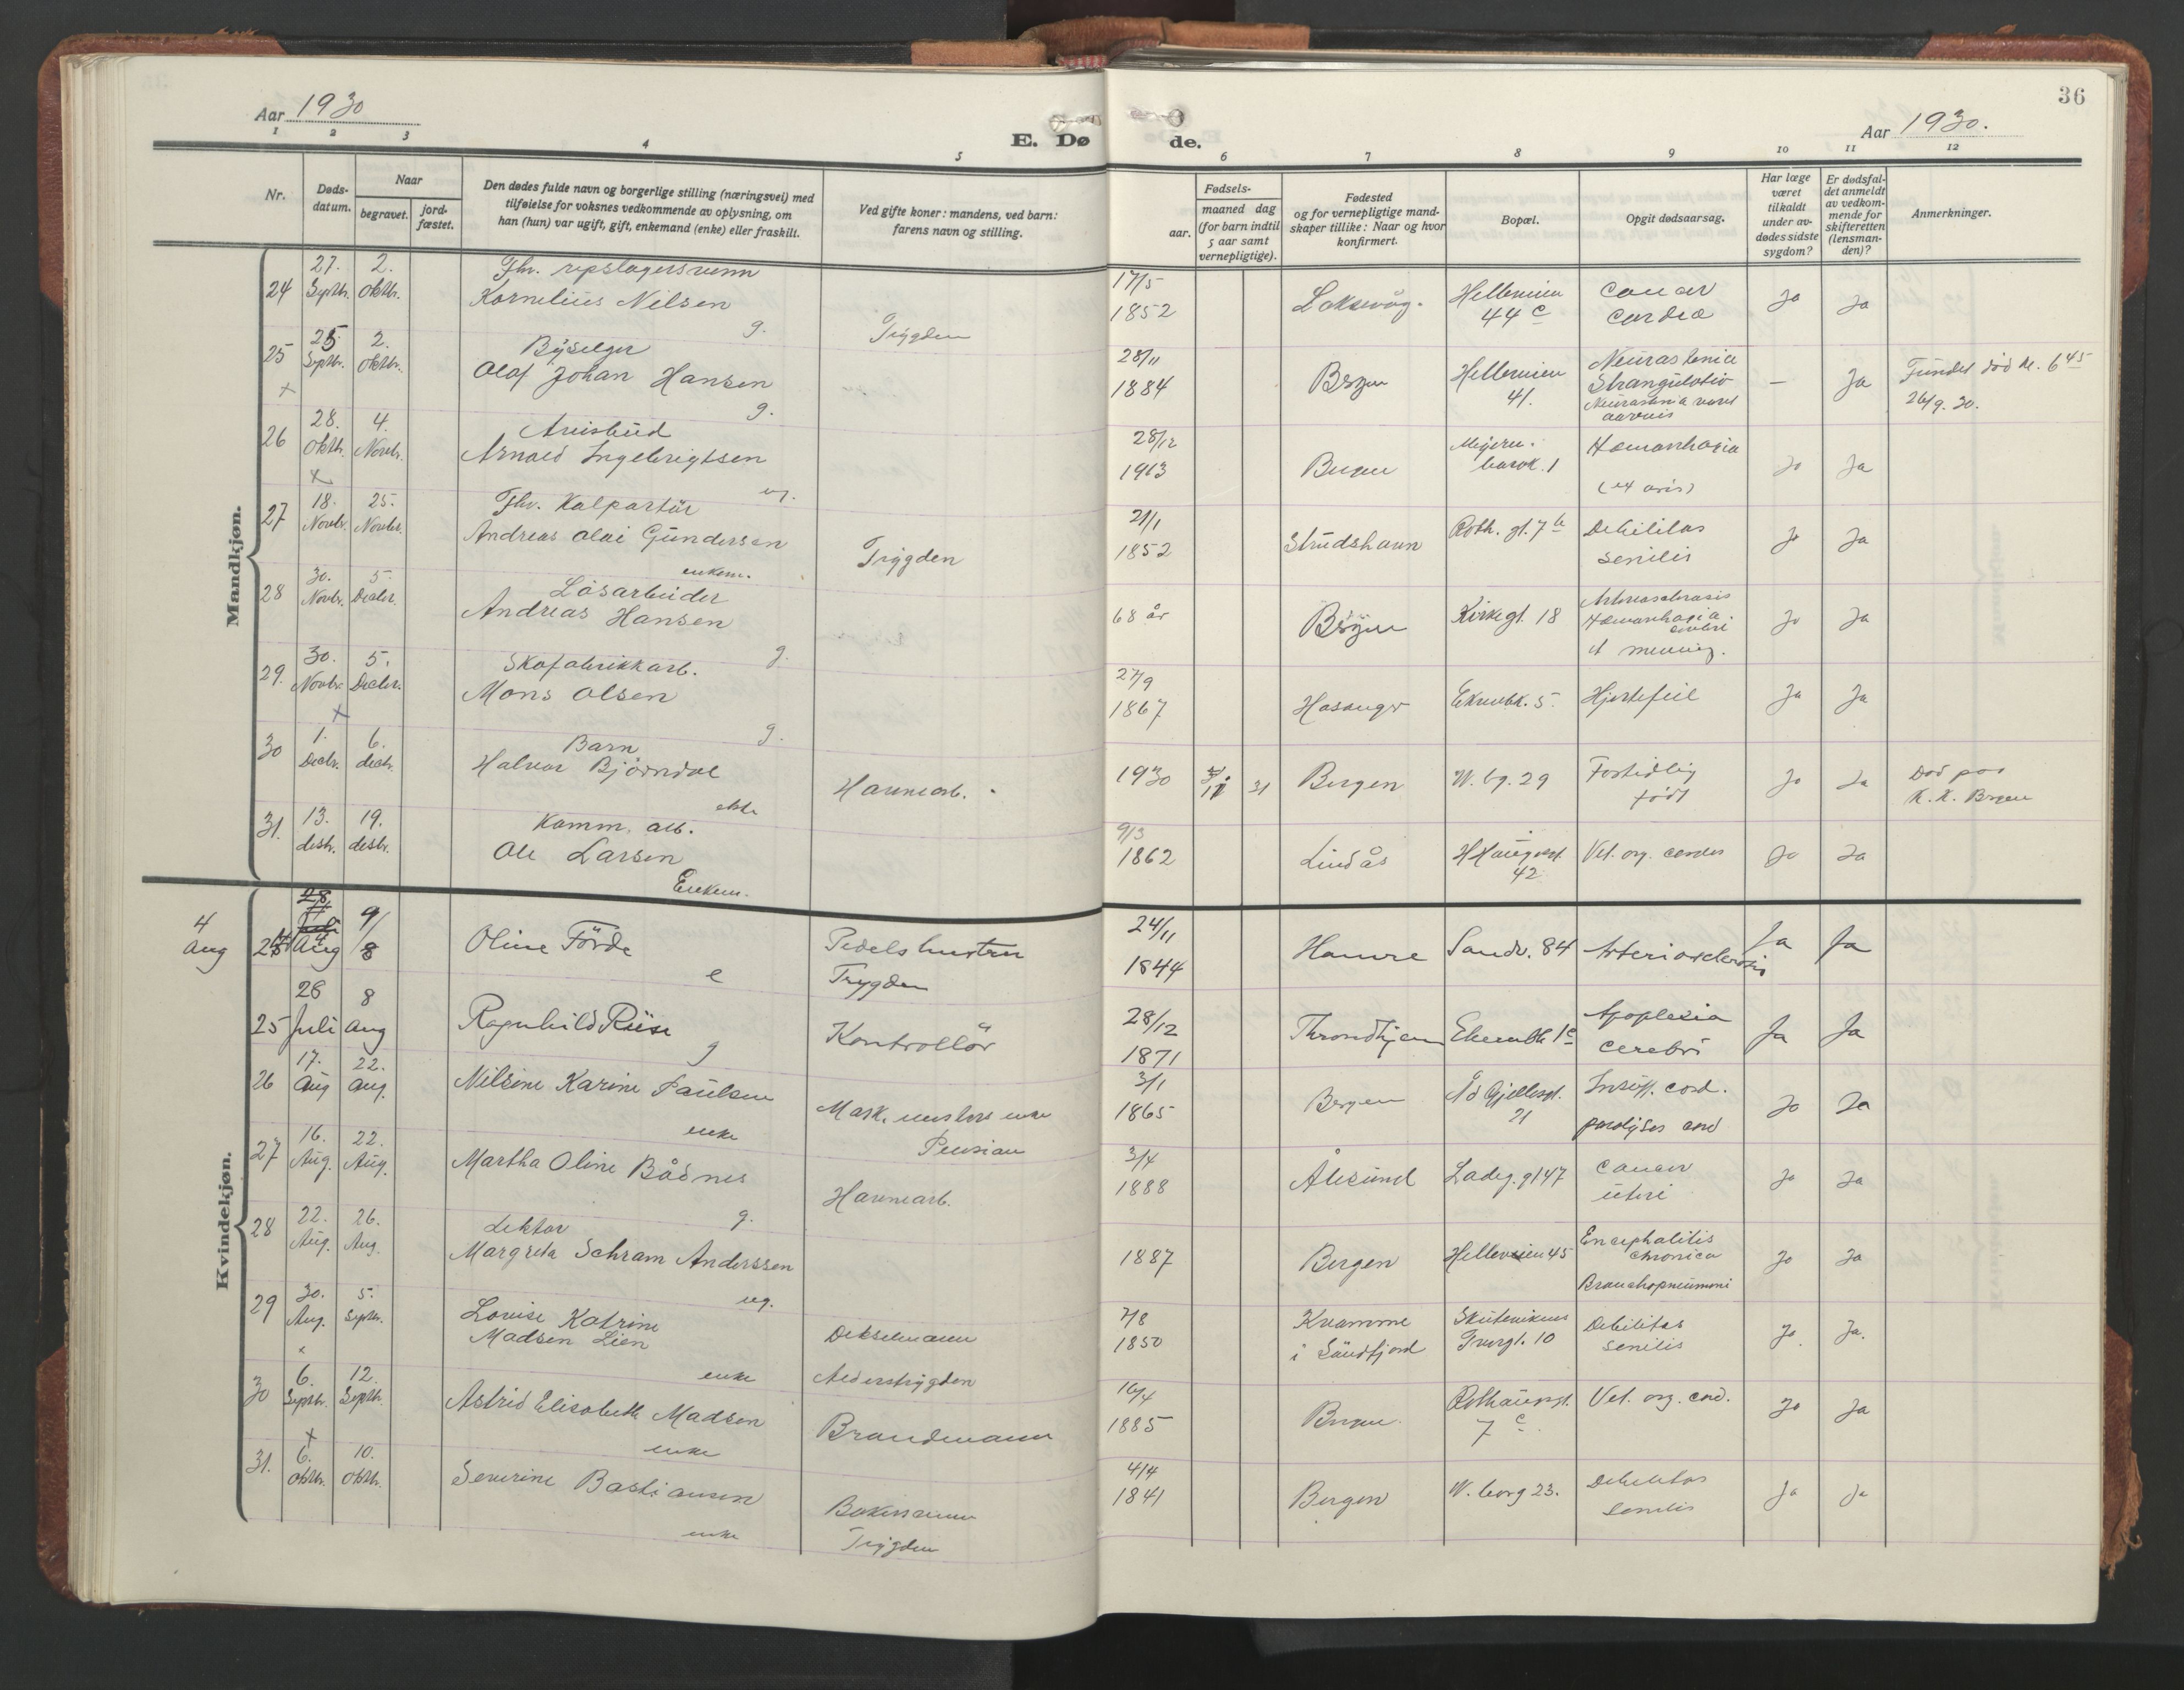 Aar 1930
E. Dø
1 2 3 4 5
Nr.
Døds-
datum.
Naar
begravet.
jord-
fæstet.
Den dødes fulde navn og borgerlige stilling (næringsvei) med
tilføielse for voksnes vedkommende av oplysning, om
han (hun) var ugift, gift, enkemand (enke) eller fraskilt.
Ved gifte koner: mandens, ved barn:
farens navn og stilling.
Mandkjøn.
24 27. Septbr. 2. Oktbr.
Fhv. repslagersvenn
Kornelius Nilsen
g.
Trygden
25 25 Septbr. 2. Oktbr.
Olaf Johan Hansen
g.
26 28. Oktbr. 4. Novbr.
Avisbud
Arnold Ingebrigtsen
ug.
27 18. Novbr. 25. Novbr.
Fhv. Kolportür
Andreas Olai Gundersen
enkem.
Trygden
28 30. Novbr. 5. Decbr.
Løsarbeider
Andreas Hansen
g.
29. 30. Novbr. 5. Decbr.
Skofabrikkarb.
Mons Olsen
g.
30 1. Decbr. 6. decbr.
Barn
Halvor Bjørndal
ekte
Havnearb.
31. 13. desbr. 19. desbr.
Komm. arb.
Ole Larsen
Enkem.
Kvindekjøn.
4
Aug
24 Aug 9/8
Oline Förde
e
Pedels hustru
Trygden
25 26 Juli 8 Aug
Ragnhild Riise
g
Kontrollör
26 17. Aug 22. Aug.
Nilsine Karine Paulsen
enke
Mask. mesters enke
Pension
27 16. Aug. 22. Aug.
Martha Oline Bådnes
g.
Havnearb.
28 22. Aug. 26. Aug.
Lektor
Margreta Schram Anderssen
ug.
29 30. Aug. 5. Septbr.
Lovise Katrine
Madsen Lien
enke
Dekselmann
Alderstrygden
30 6. Septbr. 12. Septbr.
Astrid Elisabeth Madsen
enke
Brandmann
31. 6. Oktbr. 10. Oktbr.
Severine Bastiansen
enke
Trygden
36
de.
Aar 1930.
6 7 8 9 10 11 12
Fødsels-
aar.
maaned dag
(for barn indtil
5 aar samt
vernepligtige).
Fødested
og for vernepligtige mand-
skaper tillike: Naar og hvor
konfirmert.
Bopæl.
Opgit dødsaarsag.
Har læge
været
tilkaldt
under av-
dødes sidste
sygdom?
Er dødsfal-
det anmeldt
av vedkom-
mende for
skifteretten
(lensman-
den)?
Anmerkninger.
17/5
1852 Laksevåg. Helleveien 44 c Cancer
Cardia Ja Ja
28/11
1884 Bergen Helleveien 41. Neurastenia
Strangulatio
— Ja Fundet død kl. 6 45
26/9. 30.
28/12
1913 Bergen 1 Ja Ja
21/1
1852 Strudshavn Roth. gt. 7 b Debilitas
senilis Ja Ja
68 år Bergen Kirkegt. 18 Ja Ja
27/9
1867 Hosanger 5. Hjertefeil Ja Ja
1930 31 Bergen W. bg. 29 Fortidlig
född Ja Ja Död paa
K. K. Bergen
9/3
1862 Lindås 42 Vit. org. cordis Ja Ja
24/11
1844 Hamre Sandv. 84 Arteriosclerosis Ja Ja
28/12
1871 Throndhjem Apoplexia
cerebri Ja Ja
3/1
1865 Bergen 21 Insuff. cord.
paralyses cord Ja Ja
3/4
1888 Ålesund Ladeg. gt 47 Cancer
uteri Ja Ja
1887 Bergen Helleveien 45 Encephalitis
chronica
Bronchopneumoni Ja Ja
7/8
1850 Kvamme
i Sündfjord Skuteviksens
Tvergt. 10 Debilitas
senilis Ja. Ja.
16/4
1885 Bergen Rothaugsgt.
7 c. Vit. org. cord. Ja Ja
4/4
1841 Bergen W. borg 23. Debilitas
senilis Ja Ja